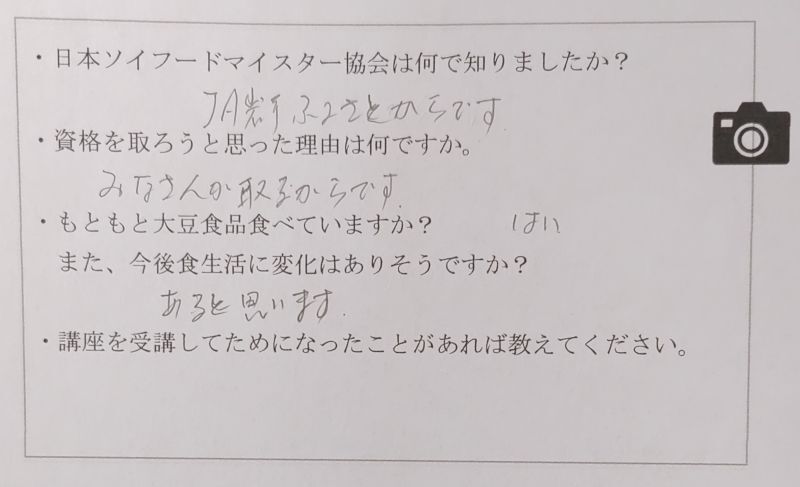 ・日本ソイフードマイスター協会は何で知りましたか？
JA岩手ふるさとからです.
・資格を取ろうと思った理由は何ですか。
みなさんが取るからです.
・もともと大豆食品食べていますか？ はい
また、今後食生活に変化はありそうですか？
あると思います.
・講座を受講してためになったことがあれば教えてください。